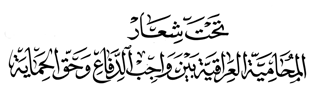 تحت شعار
المحامية العراقية بين واجب الدفاع وحق الحماية